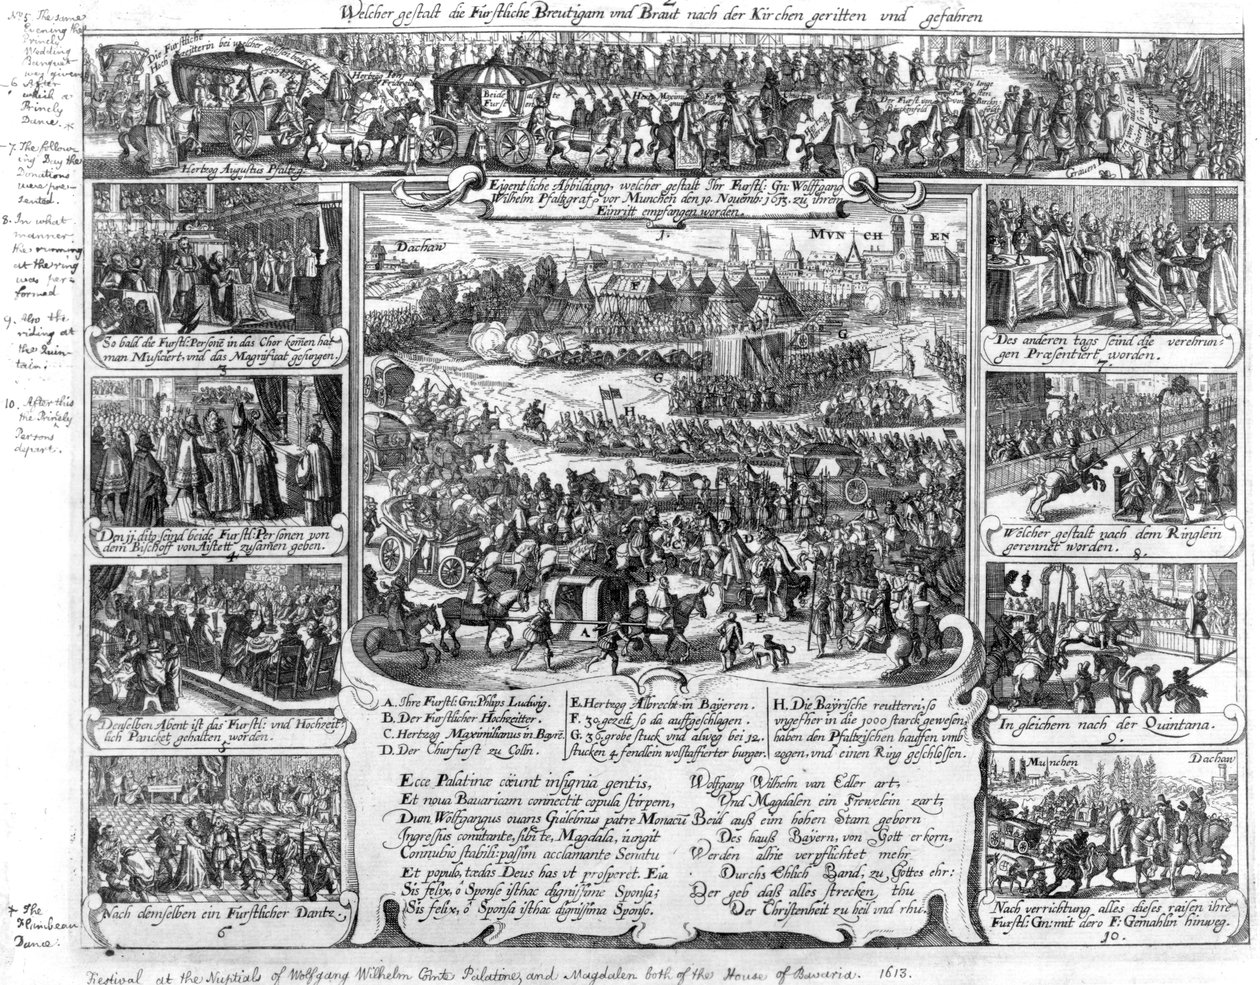 2
Welcher gestalt die Fürstliche Breutigam vnd Braut nach der Kirchen geritten vnd gefahren
No 5 The same
Evening the
Princely
Wedding
Banquet
was given
6 After
which a
Princely
Dance. *
7. The follow-
ing Day the
Donations
were pre-
sented.
8. In what
manner
the running
at the ring
was per-
formed
9. Also the
riding at
the Quin-
tain.
10. After this
the Princely
Persons
depart.
* The
Flambeau
Dance.
Die Fürstliche
Hochzeitterin bei welcher
Beide
Fürst
Hertzog Augustus Pfaltzg.
Eigentliche Abbildung, welcher gestalt Ihr Furstl: Gn: Wolffgang
Wilhelm Pfaltzgraf, vor Munchen den 10. Novemb: 1613. zu ihrem
Einritt empfangen worden.
1.
Dachaw
MVNCHEN
F
G
G
H
C
D
B
A
E
So bald die Fürstl: Personē in das Chor komen hat
man Musiciert, vnd das Magnificat gesungen.
3
Den 11. dito seind beide Fürstl: Personen von
dem Bischoff von Aystett zusamen geben.
4
Denselben Abent ist das Fürstl: vnd Hochzeit
lich Panckets gehalten worden.
5
Nach demselben ein Furstlicher Dantz
6
Des anderen tags seind die verehrun-
gen Præsentiert worden.
7
Welcher gestalt nach dem Ringlein
gerennet worden.
8.
In gleichem nach der Quintana.
9.
Munchen
Dachaw
Nach verrichtung alles dieses raisen ihre
Fürstl: Gn: mit dero F: Gemahlin hinweg.
10.
A. Ihre Furstl: Gn: Philips Ludwig.
B. Der Furstlicher Hochzeitter.
C. Hertzog Maximilianus in Bayrē.
D. Der Churfurst zu Colln.
E. Hertzog Albrecht in Bayeren.
F. 30. gezelt so da auffgeschlagen.
G. 36. grobe stuck vnd alweg bei 12.
stucken 4 fendlein wolstaffierter burger.
H. Die Bayrische reutterei, so
vngefher in die 1000 starck gewesen,
haben den Pfaltzischen hauffen vmb
zogen, vnd einen Ring geschlossen.
Ecce Palatinæ coëunt insignia gentis,
Et noua Bauaricam connectit copula stirpem,
Dum Wolfgangus ouans Guilelmus patre Monacū
Ingressus comitante, sibi te, Magdala, iungit
Connubio stabili: passim acclamante Senatu
Et populo, tædas Deus has vt prosperet. Eia
Sis felix, ô Sponse isthac dignissime Sponsa;
Sis felix, ô Sponsa isthac dignissima Sponso.
Wolfgang Wilhelm van Edler art,
Vnd Magdalen ein Frewelein zart,
Beid auß eim hohen Stam geborn
Deß hauß Baÿern, von Gott erkorn,
Werden alhie verpflichtet mehr
Durchs Ehlich Band, zu Gottes ehr:
Der geb daß alles strecken thu
Der Christenheit zu heil vnd rhu.
Festival at the Nuptials of Wolfgang Wilhelm Cōnte Palatine, and Magdalen both of the House of Bavaria. 1613.